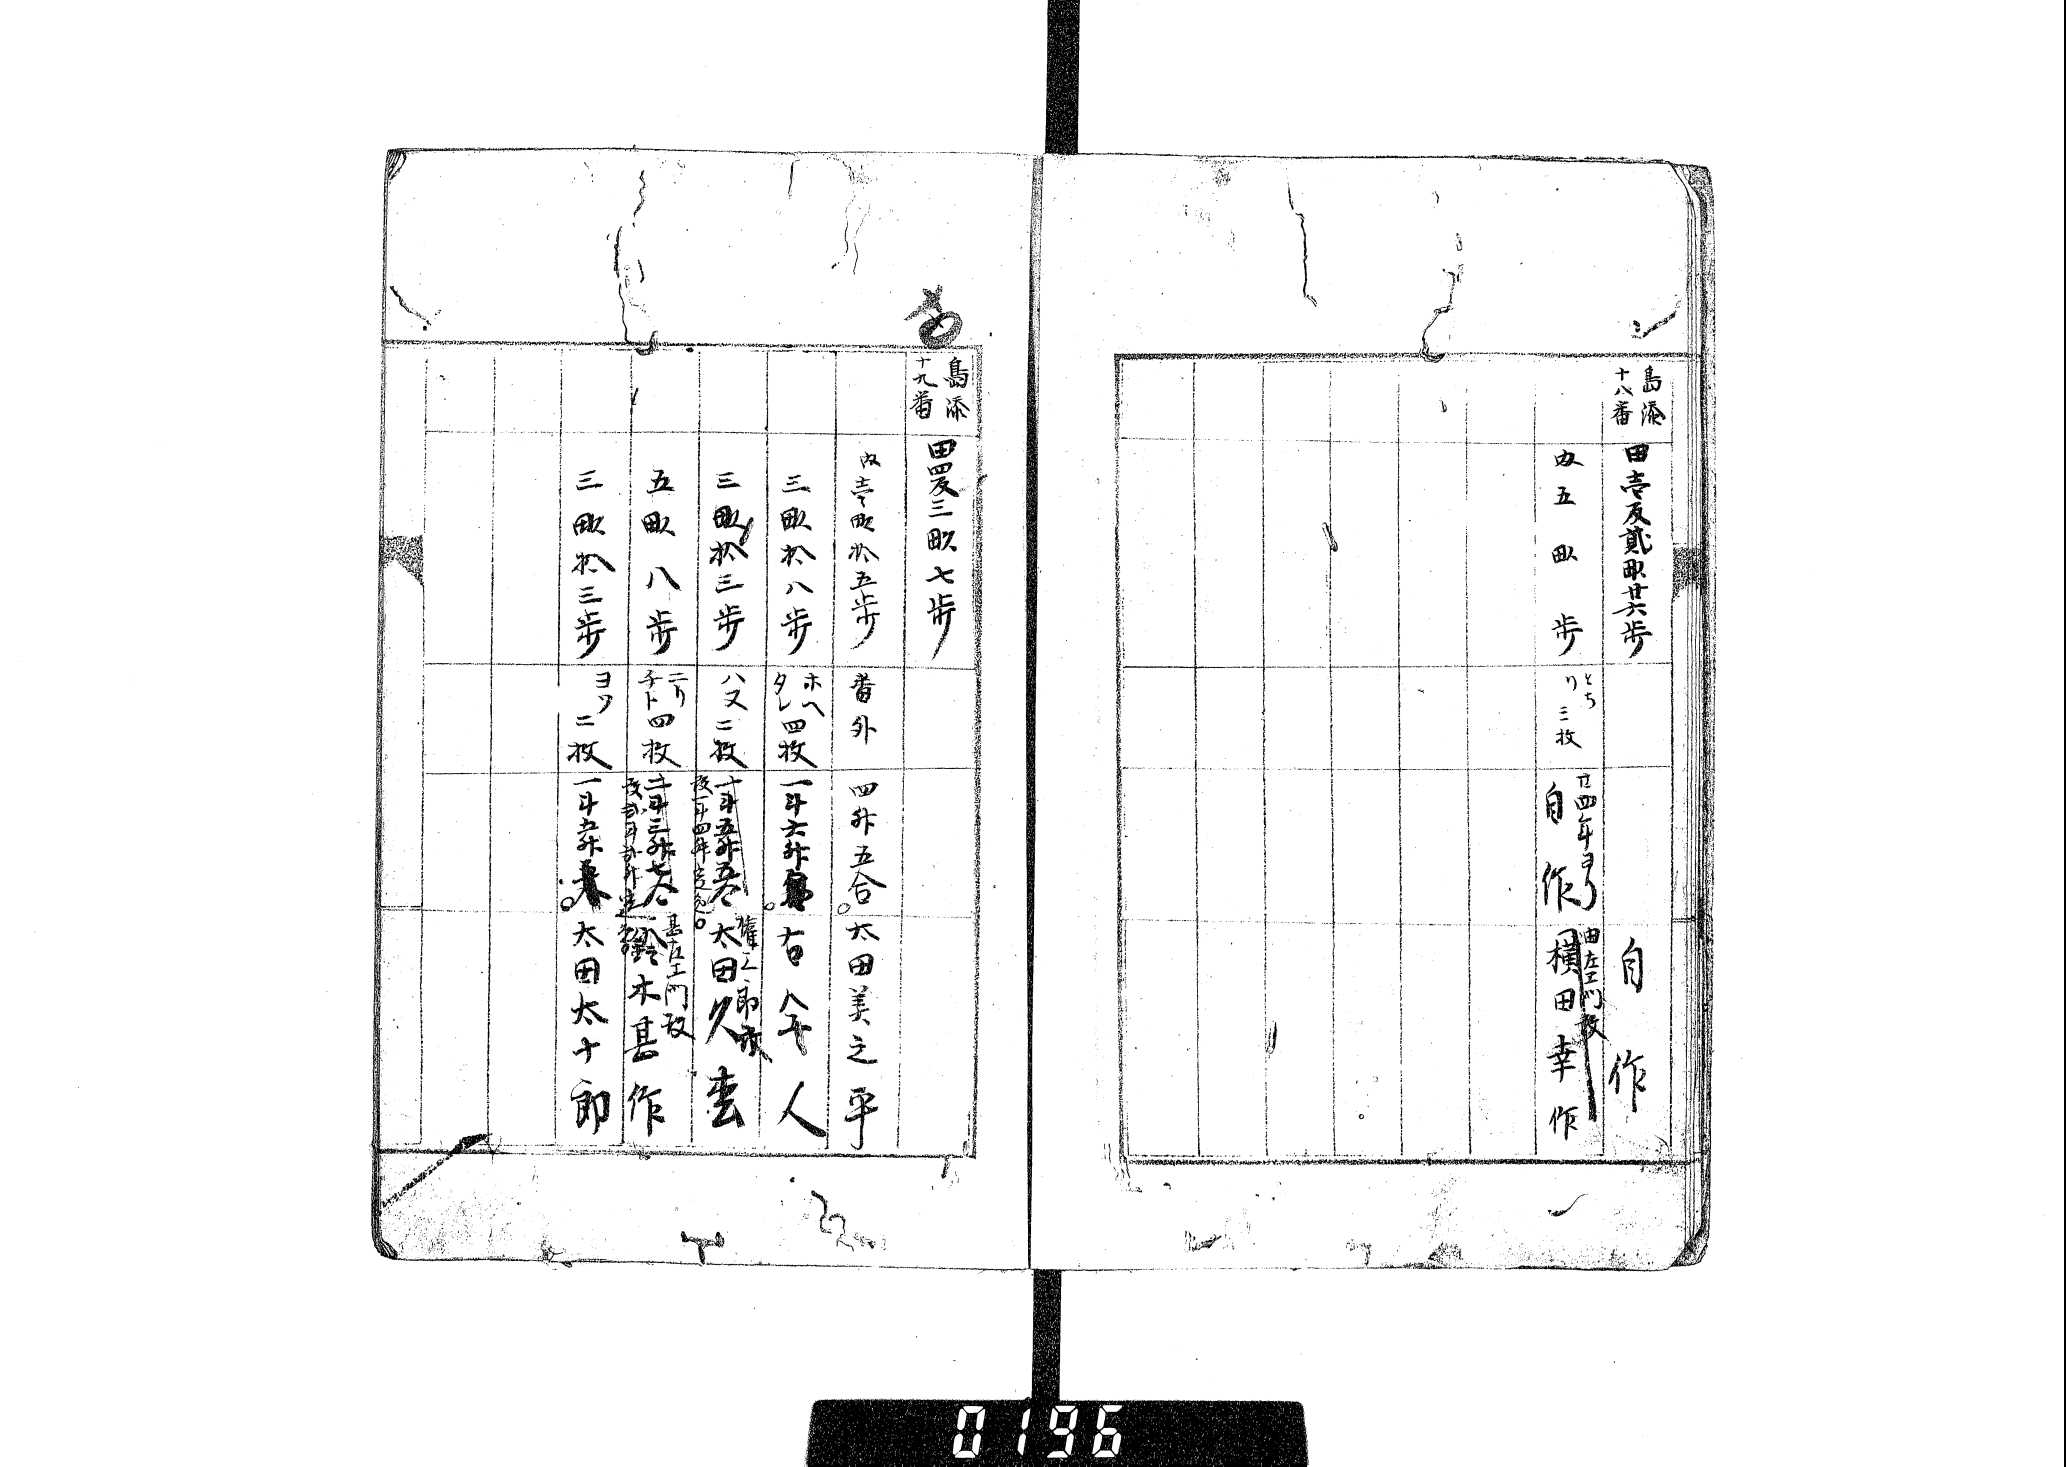 島添
十八番
田壱反貳畝廿六歩
自作
内五畝歩
とち
り
三枚
廿四年ヨリ
自作
由左エ門改
横田幸作
島添
十九番
田四反三畝七歩
内壱畝拾五歩
番外
四升五合
太田美之平
三畝拾八歩
ホヘ
タレ
四枚
一斗六升
右仝人
三畝拾三歩
ハヌ
二枚
一斗五升五合
改一斗四升
権三郎改
太田久
五畝八歩
ニリ
チト
四枚
二斗三升七合
改弐斗弐升
甚左エ門改
鈴木甚作
三畝拾三歩
ヨツ
二枚
一斗五升
太田太十郎
0196